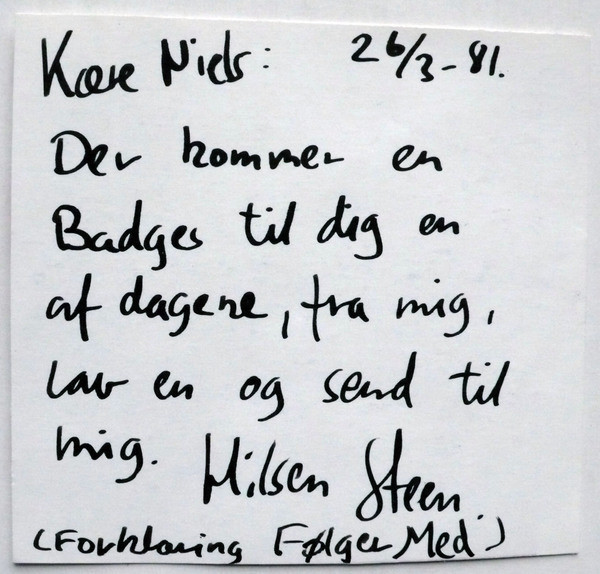 Kære Niels: 26/3-81.
Der kommer en
Badges til dig en
af dagene, fra mig,
lav en og send til
mig. Hilsen Steen.
(Forklaring Følger Med)